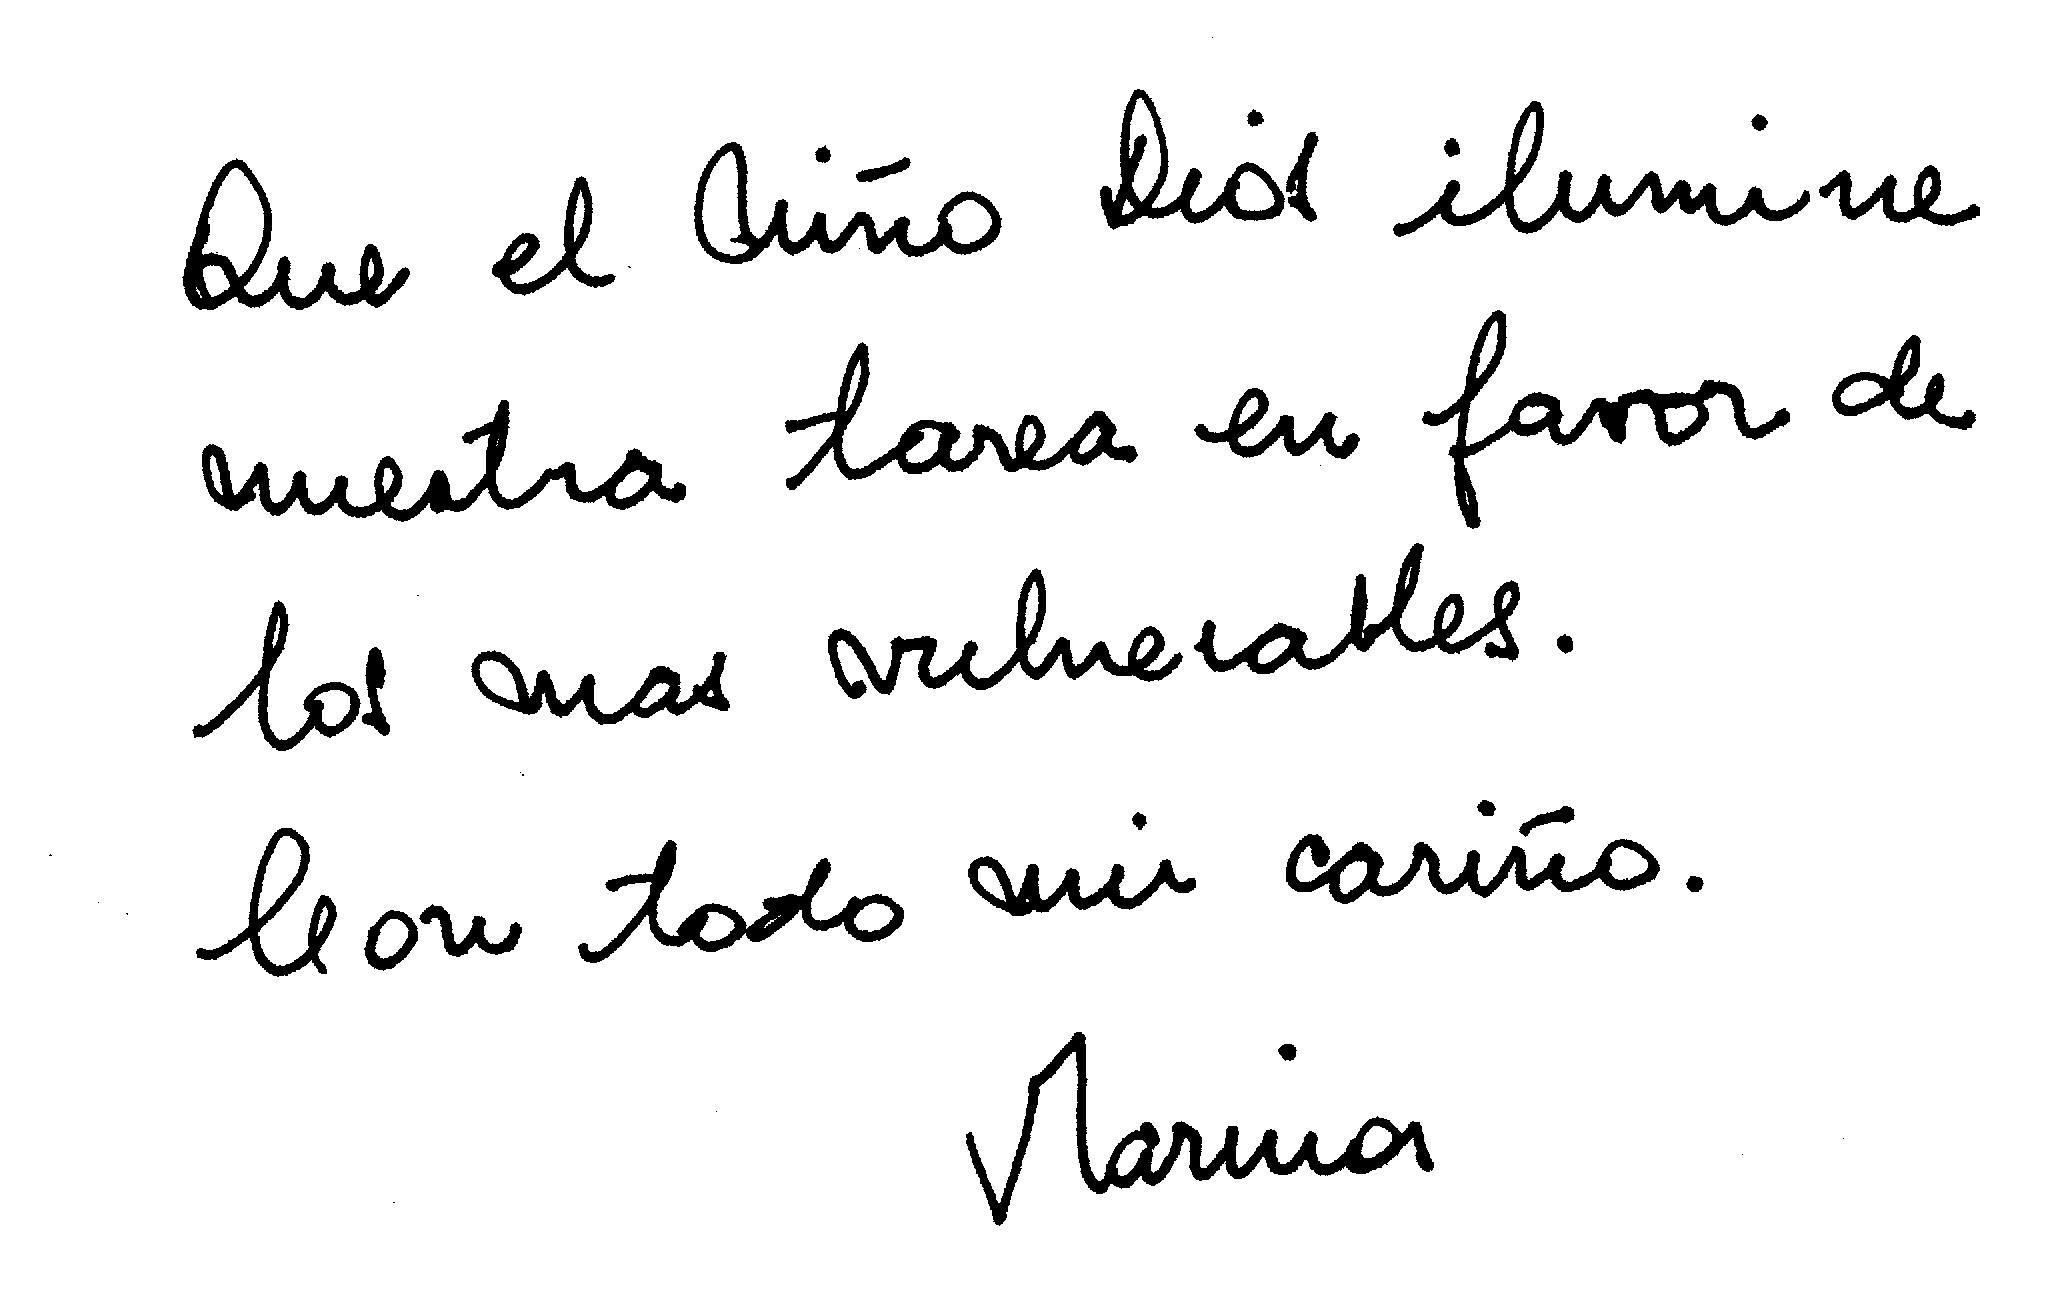 Que el Niño Dios ilumine
nuestra tarea en favor de
los mas vulnerables.
Con todo mi cariño.
Marina